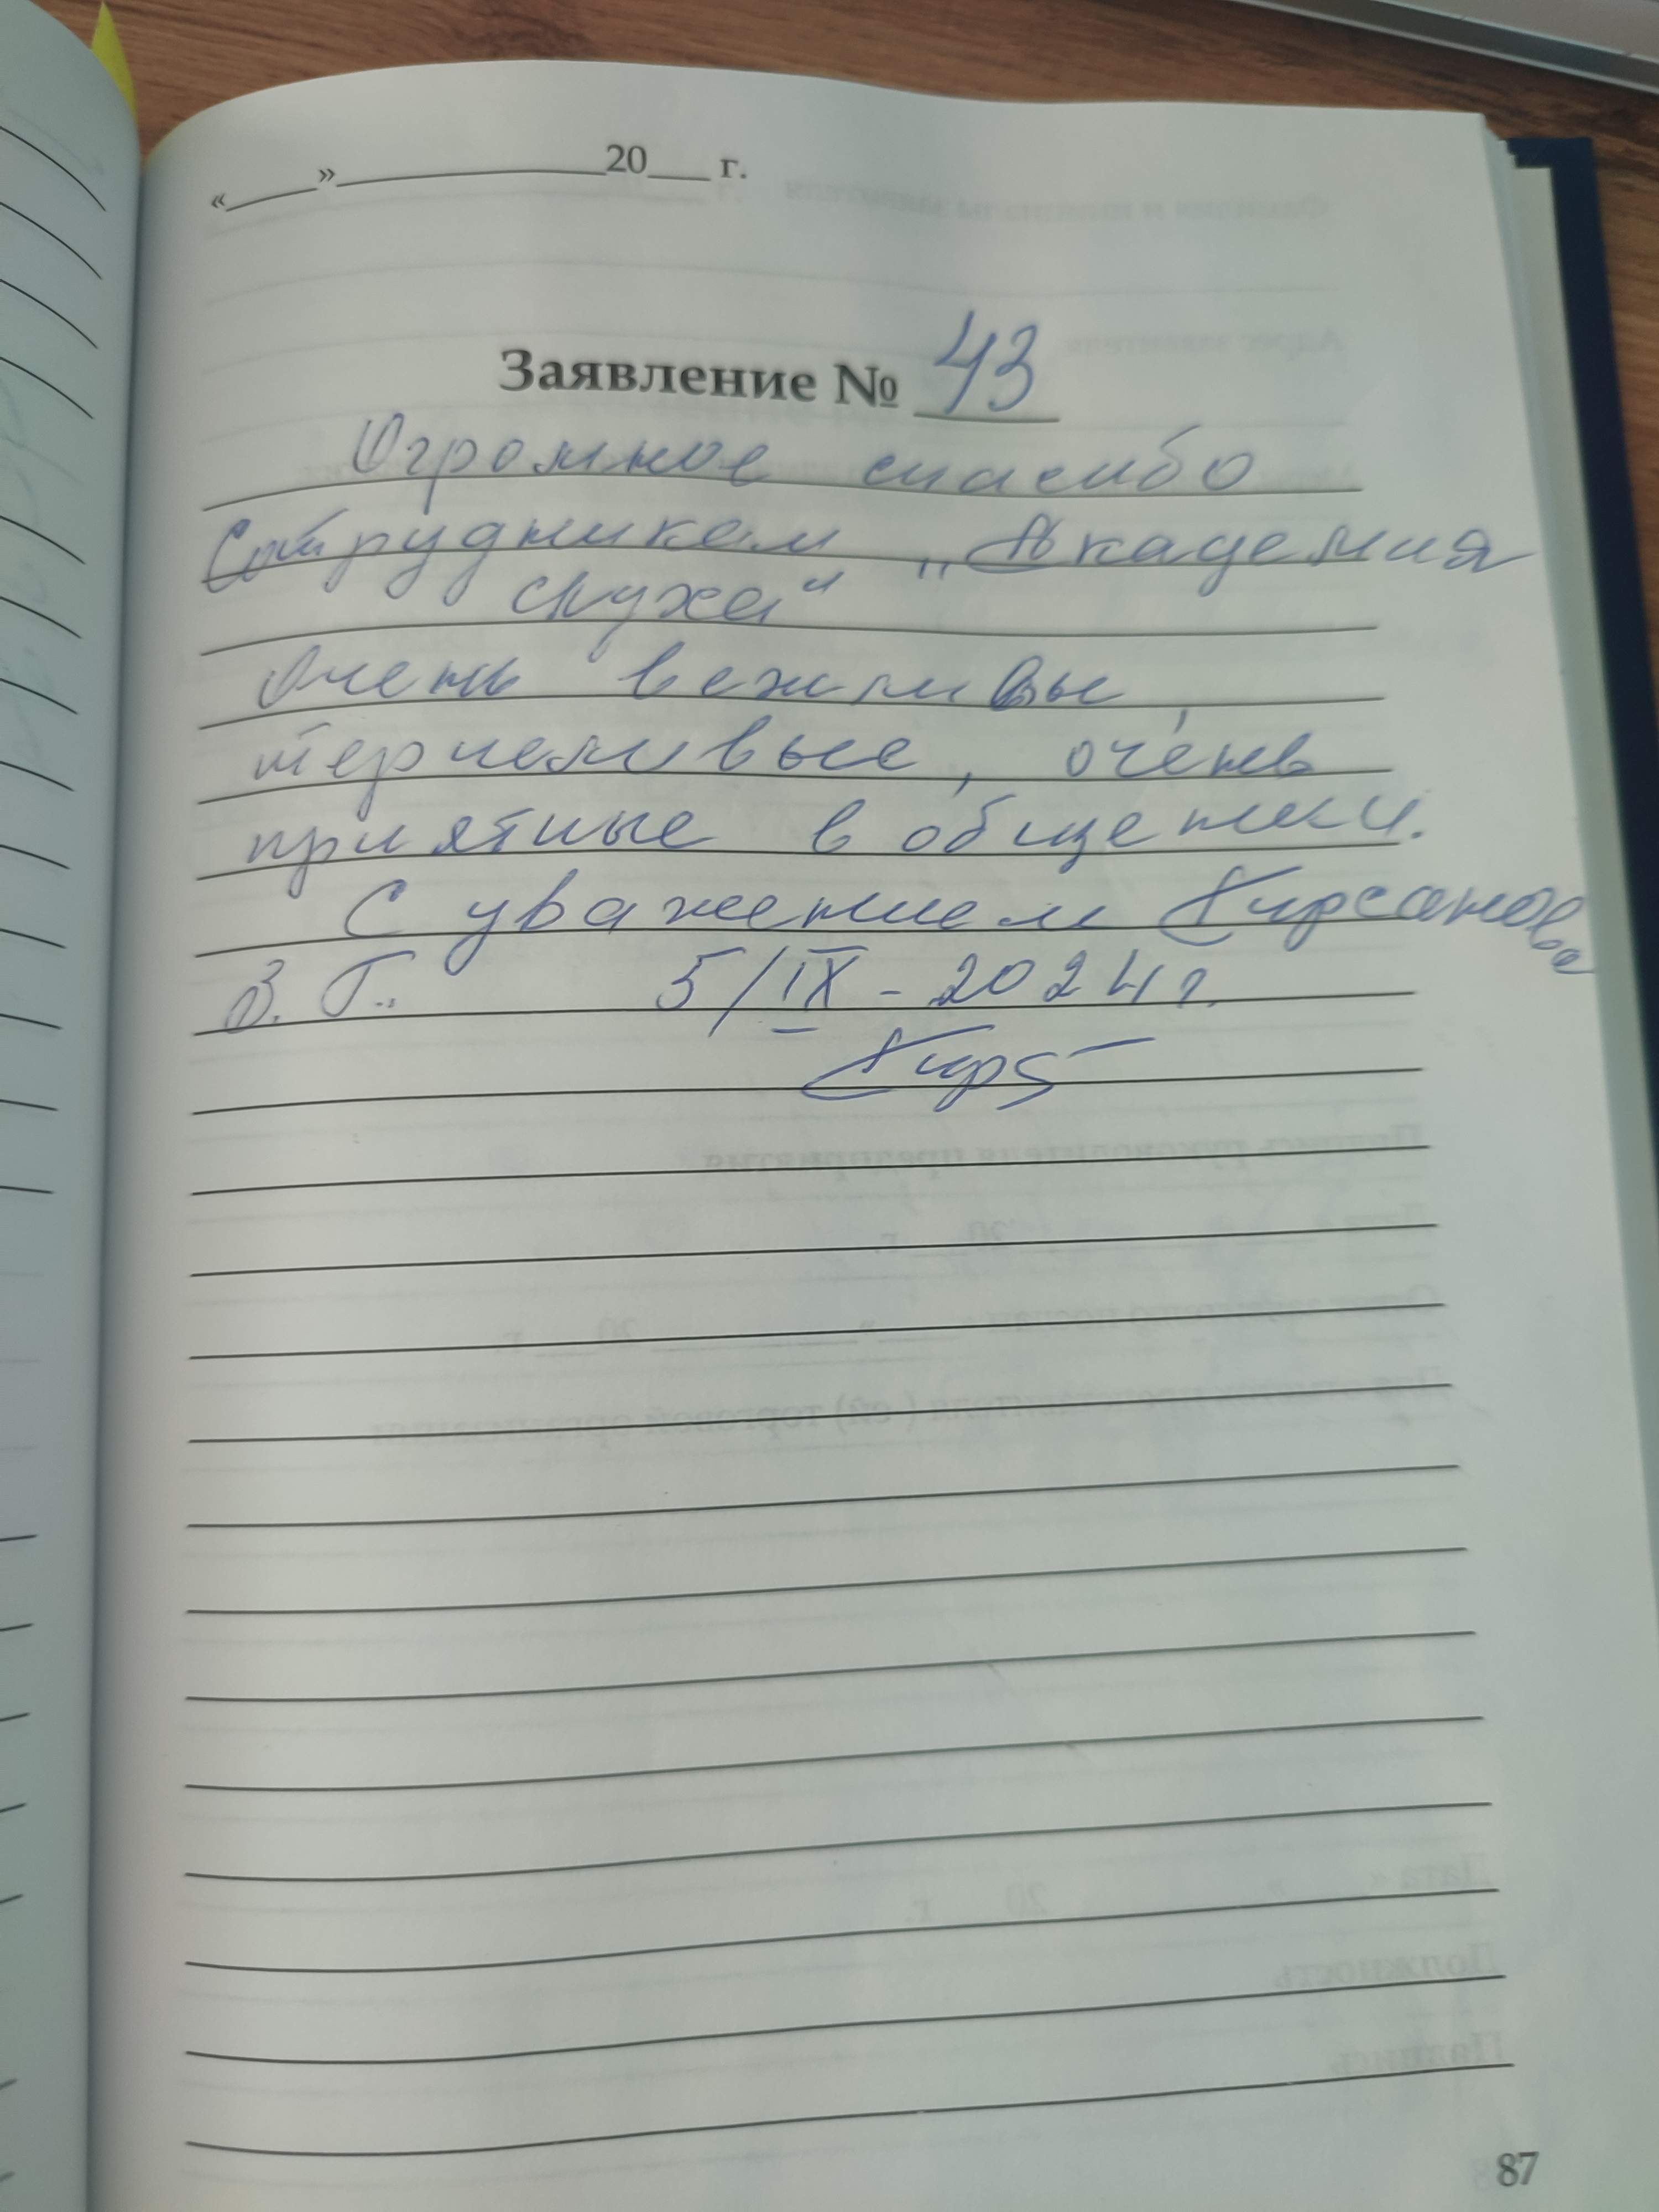 «____»____________20___ г.
Заявление № 43
Огромное спасибо
Сотрудникам „Академия
слуха“
Очень вежливые,
терпеливые, очень
приятные в общении.
С уважением Кирсанова
В. Г. 5/IX - 2024 г.
Кирс
87